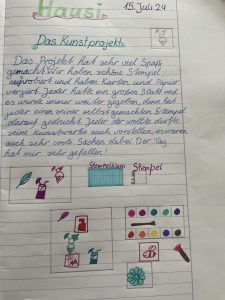 Hausi
15. Juli. 24
Das Kunstprojekt
Das Projekt hat sehr viel Spaß
gemacht. Wir haben schöne Stempel
ausprobiert und haben Karten und Papier
verziert. Jeder hatte ein großes Blatt und
es wurde immer weiter gegeben, dann hat
jeder einen seiner selbstgemachten Stempel
darauf gedruckt. Jeder der wollte durfte
seine Kunstwerke auch vorstellen, es waren
auch sehr coole Sachen dabei. Der Tag
hat mir sehr gefallen!
Stempelkissen Stempel